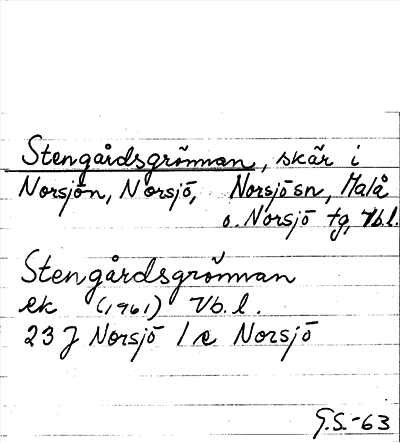 Stengårdsgrönnan, skär i
Norsjön, Norsjö, Norsjösn, Malå
o. Norsjö tg, Vb.l.
Stengårdsgrönnan
ek (1961) Vb.l.
23 J Norsjö 1 c Norsjö
G.S.-63